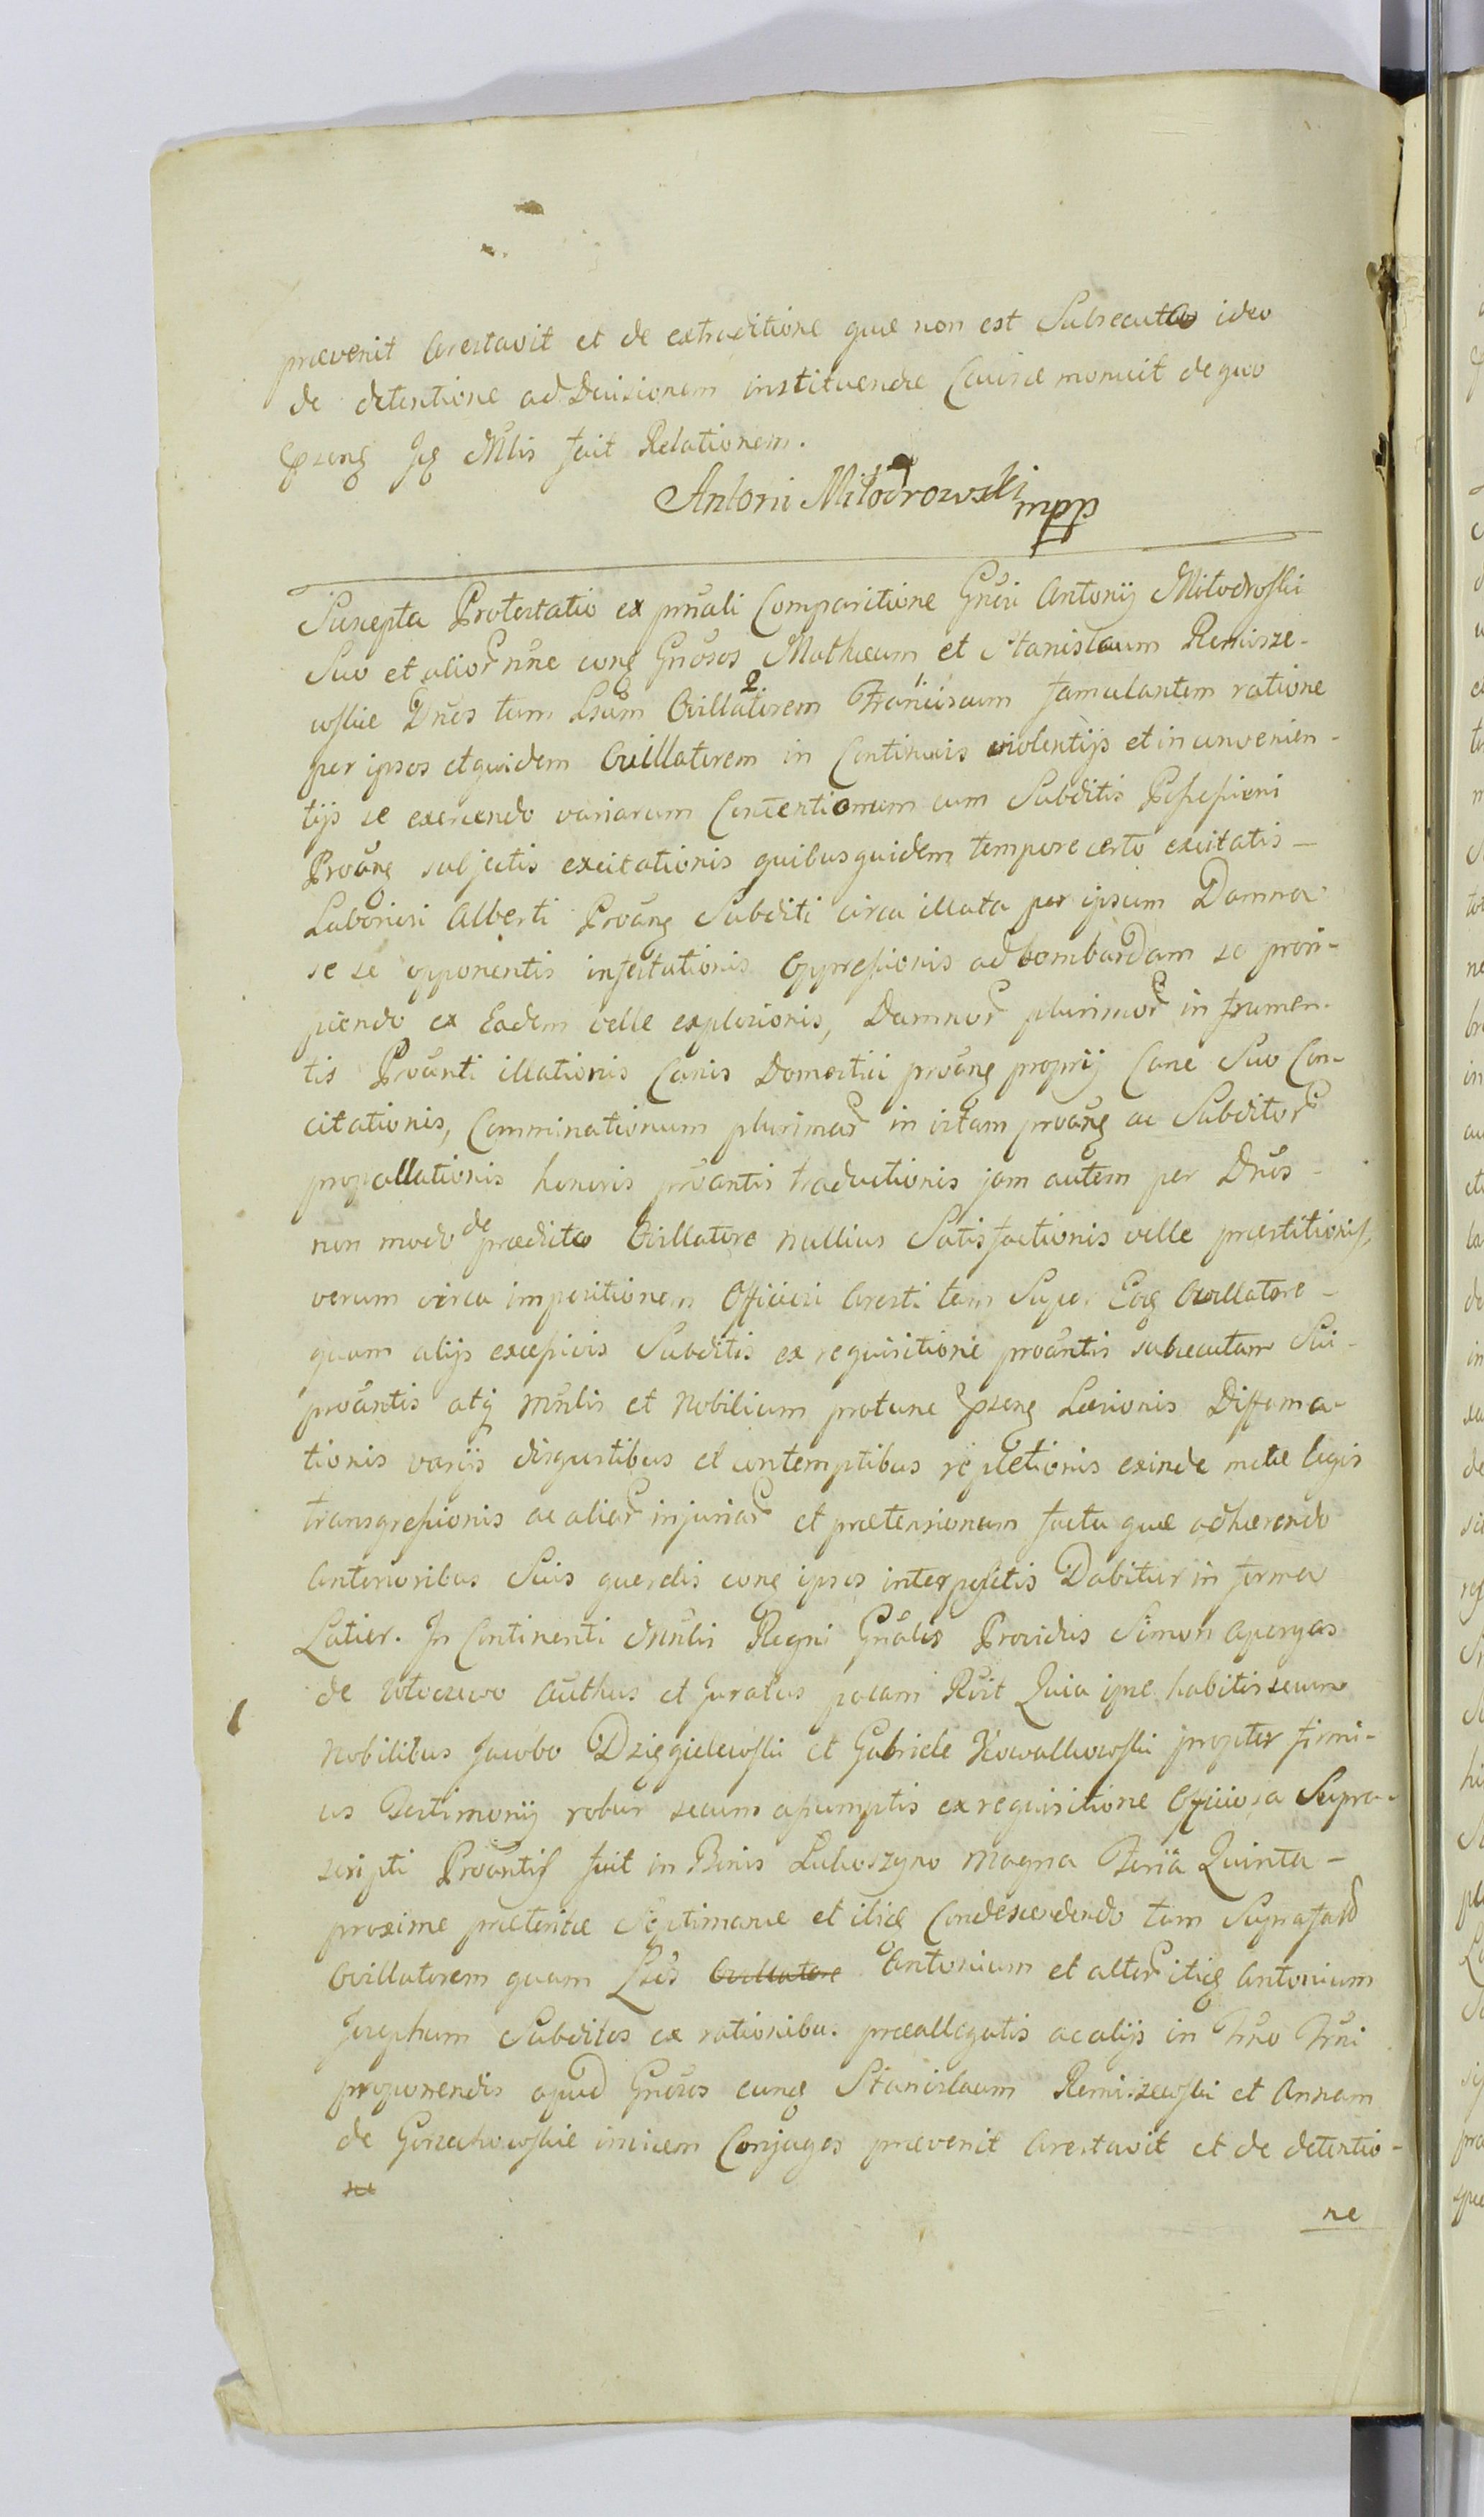 prævenit Arestavit et de extraditione quæ non est Subsecuta ideo
de detentione ad Decisionem instituendæ Causæ monuit de quo
Mlis fecit Relationem.
Antoni Miłodrowski mpp
Suscepta Protestatio ex prnali Comparitione Gnosi Antonij Miłodroski
Suo et alior nne Gnosos Mathæum et Stanislaum Remisze-
wskie Dnos tum Lsum Ovillatorem Franciscum famulantem ratione
per ipsos et quidem Ovillatorem in Continuis violentijs et inconvenien-
tijs se exercendo variarum Contentionum cum Subditis Possessioni
subjectis excitationis quibus quidem tempore certo excitatis
Laboriosi Alberti Subditi circa illata per ipsum Damna
se se opponentis infestationis Oppressionis ad bombardam se prori-
piendo ex Eadem velle explosionis, Damnor plurimor in frumen-
tis Proanti illationis Canis Domestici proprij Cane Suo Con-
citationis, Comminationum plurimar in vitam ac Subditor
propallationis honoris proantis traductionis jam autem per Dnos
non modo de prædicto Ovillatore nullius Satisfactionis velle præstitionis,
verum circa impositionem Officiosi Aresti tam Super Ovillatore
quam alijs Subditis ex requisitione proantis subsecutam Sui
proantis atq Mnlis et Nobilium protunc Læsionis Diffama-
tionis varijs disgustibus et contemptibus repletionis exinde metæ legis
transgressionis ac aliar injuriar et prætensionum facta quæ adhærendo
Anterioribus Suis querelis ipsos interpositis Dabitur in forma
Latior. In Continenti Mnlis Regni Gnalis Providus Simon
de authus et Juratus palam Rvit Quia ipse habitis secum
Nobilibus Jacobo Dzięgielewski et Gabriele Kowallkowski propter firmi-
us Testimonij robur secum assumptis ex requisitione Officiosa Supra-
scripti Proantis fuit in Bonis Luboszyno Magna Feria Quinta
proxime præteritæ Septimanæ et Condescendendo tam
Ovillatorem quam Antonium et Antonium
Josephum Subditos ex rationibus præallegatis ac alijs in
proponendis apud Gnosos Stanislaum Remiszewski et Annam
de invicem Conjuges prævenit Arestavit et de detentio-
ne